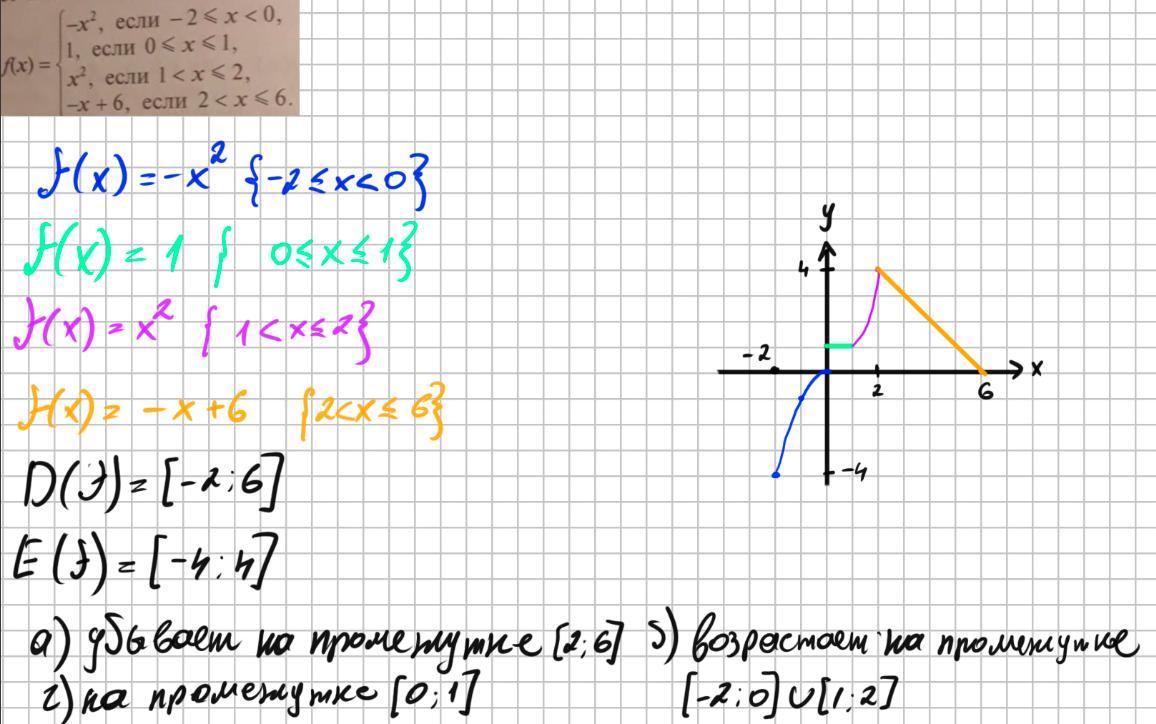 f(x) = { −x², если −2 ⩽ x < 0,
1, если 0 ⩽ x ⩽ 1,
x², если 1 < x ⩽ 2,
−x + 6, если 2 < x ⩽ 6.
f(x) = -x² {-2 ≤ x < 0}
f(x) = 1 { 0 ≤ x ≤ 1}
f(x) = x² { 1 < x ≤ 2}
f(x) = -x + 6 {2 < x ≤ 6}
y
4
-2
x
2
6
-4
D(f) = [-2; 6]
E(f) = [-4; 4]
а) убывает на промежутке [2; 6] б) возрастает на промежутке
г) на промежутке [0; 1] [-2; 0] ∪ [1; 2]